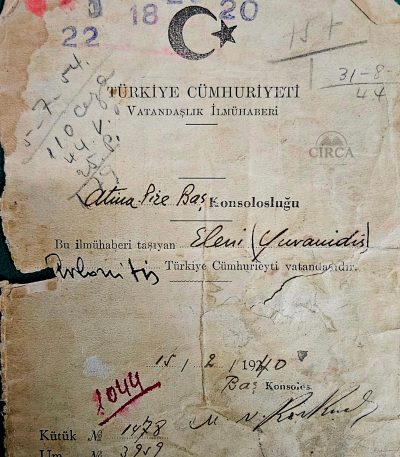 18 20
22
15+1
1
31-8-
44
5-7-54.
110 ceza
44.V.
25.P.
TÜRKİYE CÜMHURİYETİ
VATANDAŞLIK İLMÜHABERİ
CIRCA
Atina Pire Baş Konsolosluğu
Bu ilmühaberi taşıyan Eleni (Yuvanidis)
Türkiye Cümhuriyeti vatandaşıdır.
15 / 2 / 1940
Baş Konsolos
2044
Kütük № 1478
Um. № 3959